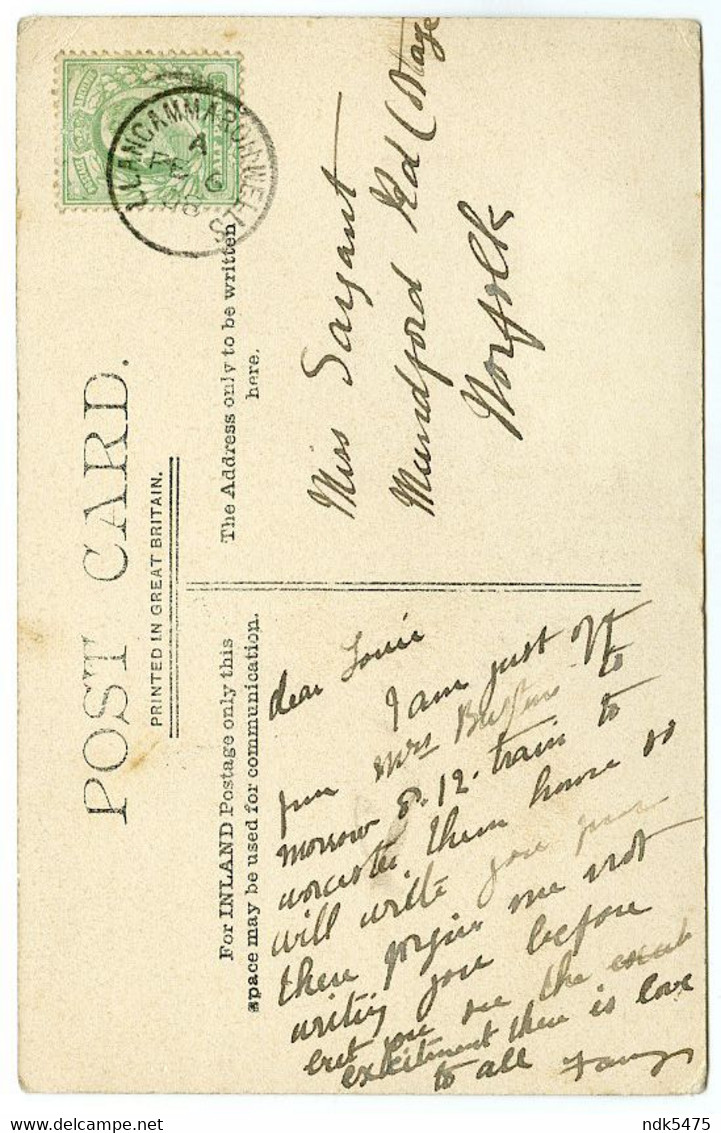 POST CARD.
PRINTED IN GREAT BRITAIN.
For INLAND Postage only this
space may be used for communication.
The Address only to be written
here.
LLANGAMMARCH WELLS
A
FE 6
08
Miss Sargant
Mundford Rd (Stage
Norfolk
dear Louie
I am just off
from Mrs to
morrow 8.12. train to
worcester then home so
will write you from
there forgive me not
writing you before
but you see the
excitment there is love
to all Fanny
ndk5475